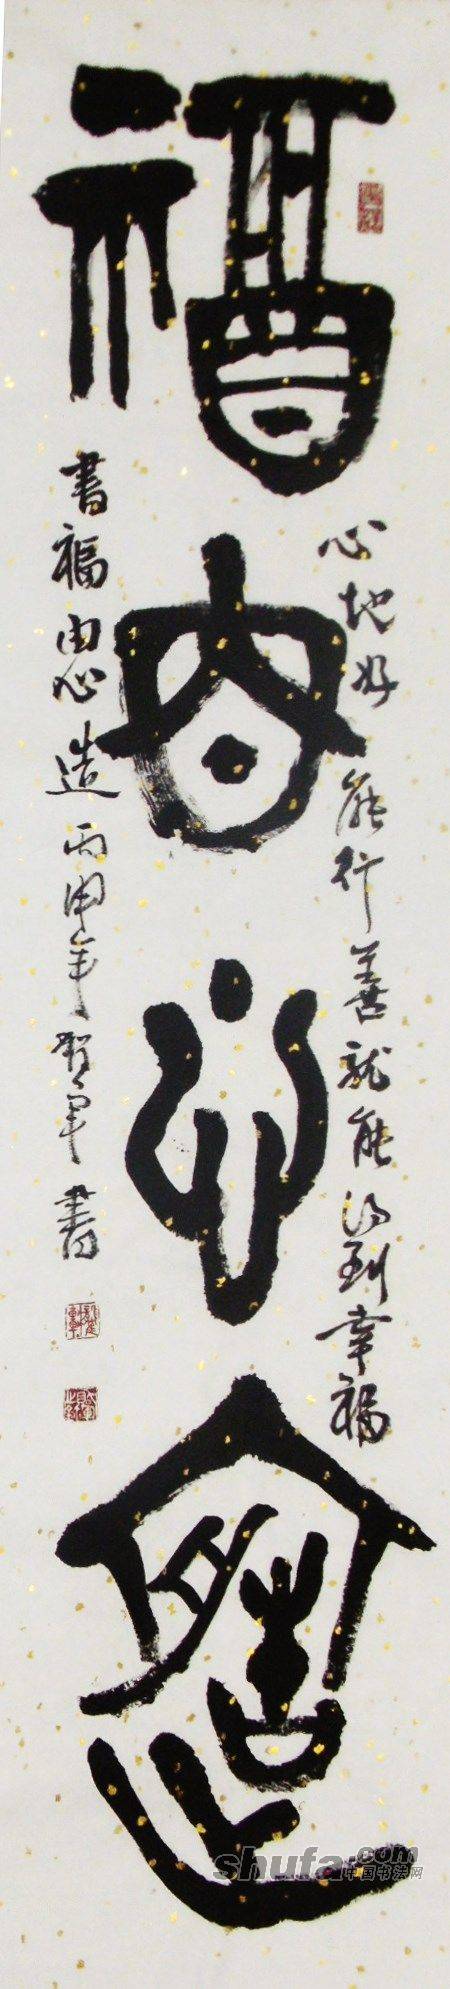 福由心造
心地好能行善就能得到幸福
书福由心造丙申年贺军书
shufa.com
中国书法网